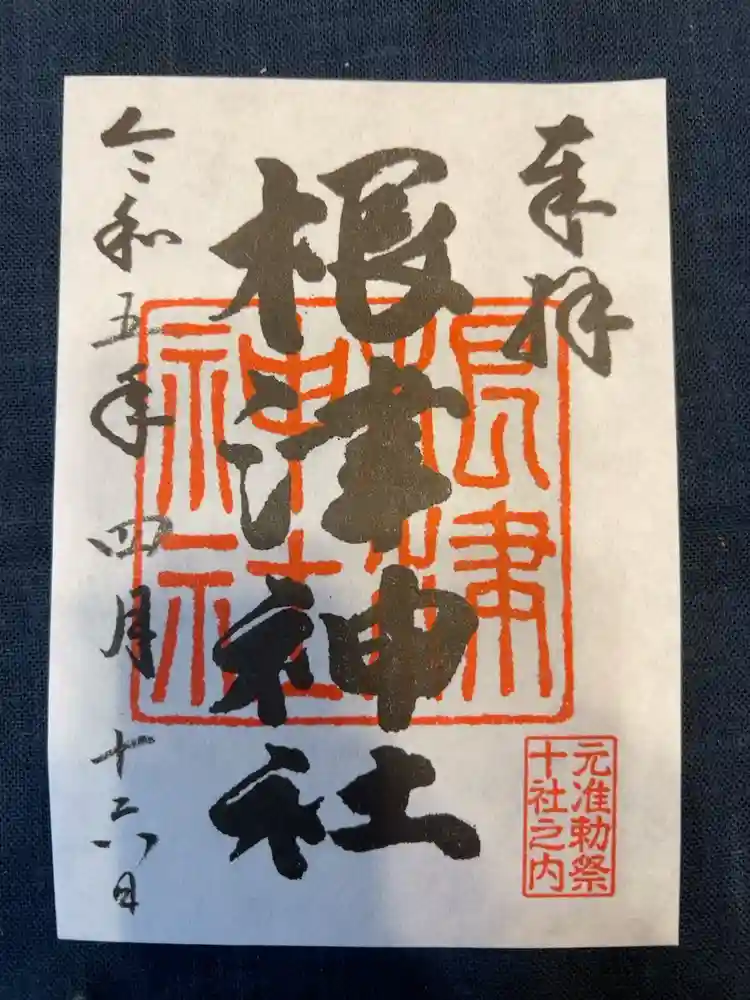 奉拝
根津神社
根津神社
元准勅祭
十社之内
令和五年四月十六日